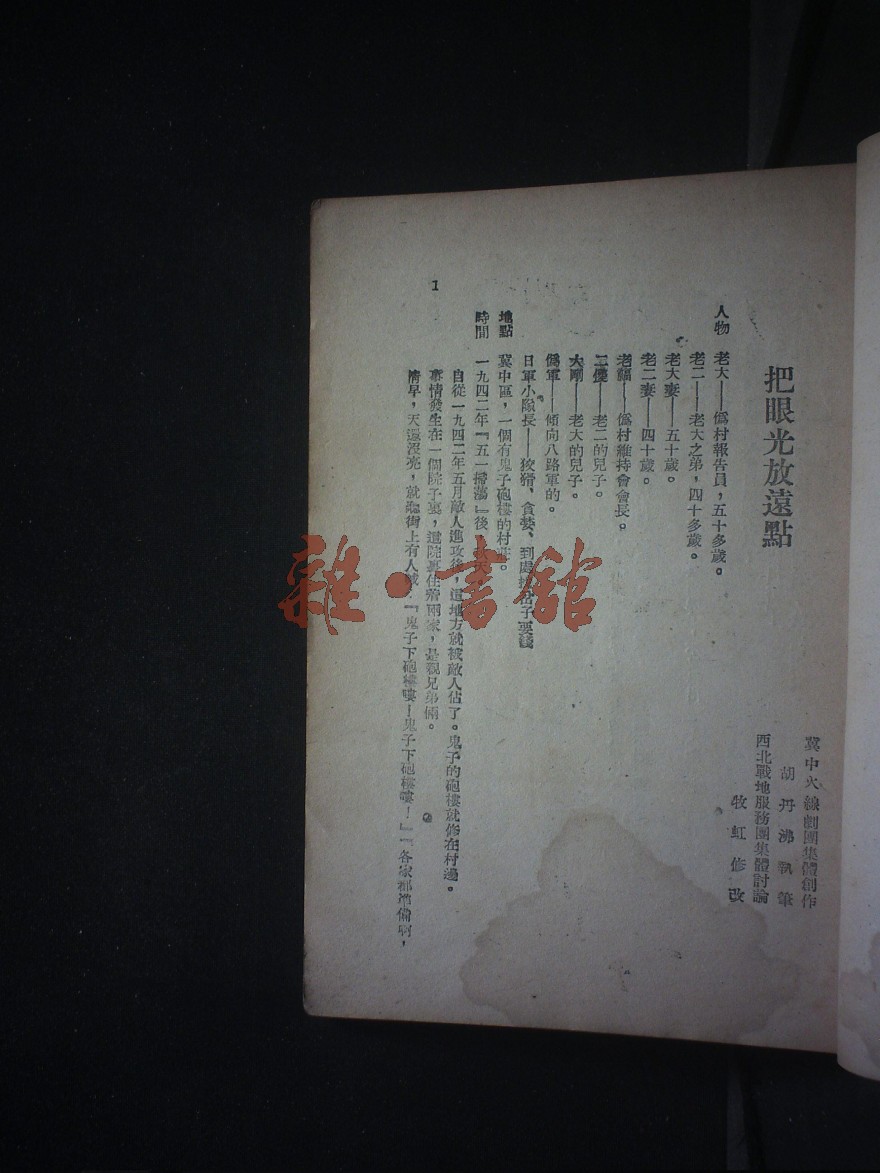 把眼光放遠點
冀中火線劇團集體創作
胡丹沸執筆
西北戰地服務團集體討論
牧虹修改
人物 老大——僞村報告員，五十多歲。
老二——老大之弟，四十多歲。
老大妻——五十歲。
老二妻——四十歲。
老福——僞村維持會會長。
二傻——老二的兒子。
大剛——老大的兒子。
僞軍——傾向八路軍的。
日軍小隊長——狡猾、貪婪、到處 子要錢
地點 冀中區，一個有鬼子砲樓的村莊。
時間 一九四二年『五一掃蕩』後 天。
自從一九四二年五月敵人進攻後，這地方就被敵人佔了。鬼子的砲樓就修在村邊。
事情發生在一個院子裏，這院裏住着兩家，是親兄弟倆。
清早，天還沒亮，就聽街上有人喊：『鬼子下砲樓嘍！鬼子下砲樓嘍！』『各家都準備啊，
1
雜·書館